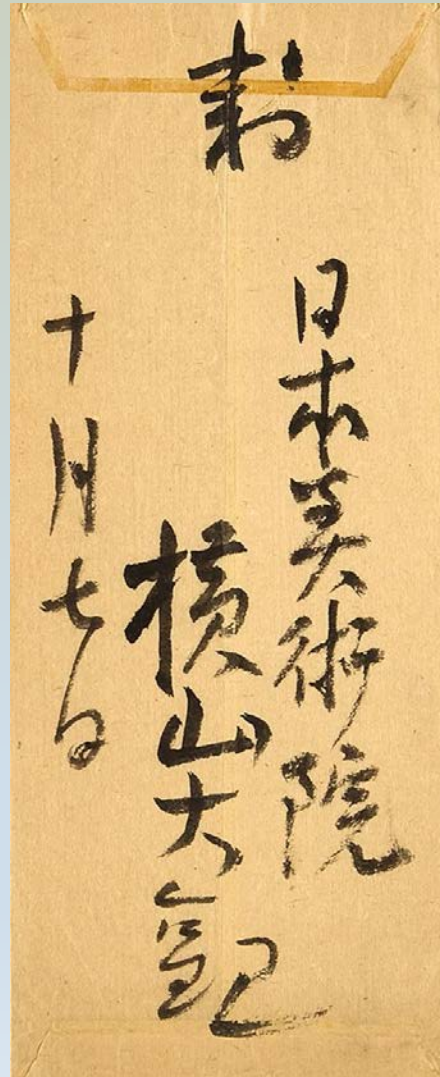 封
日本美術院
横山大観
十月七日